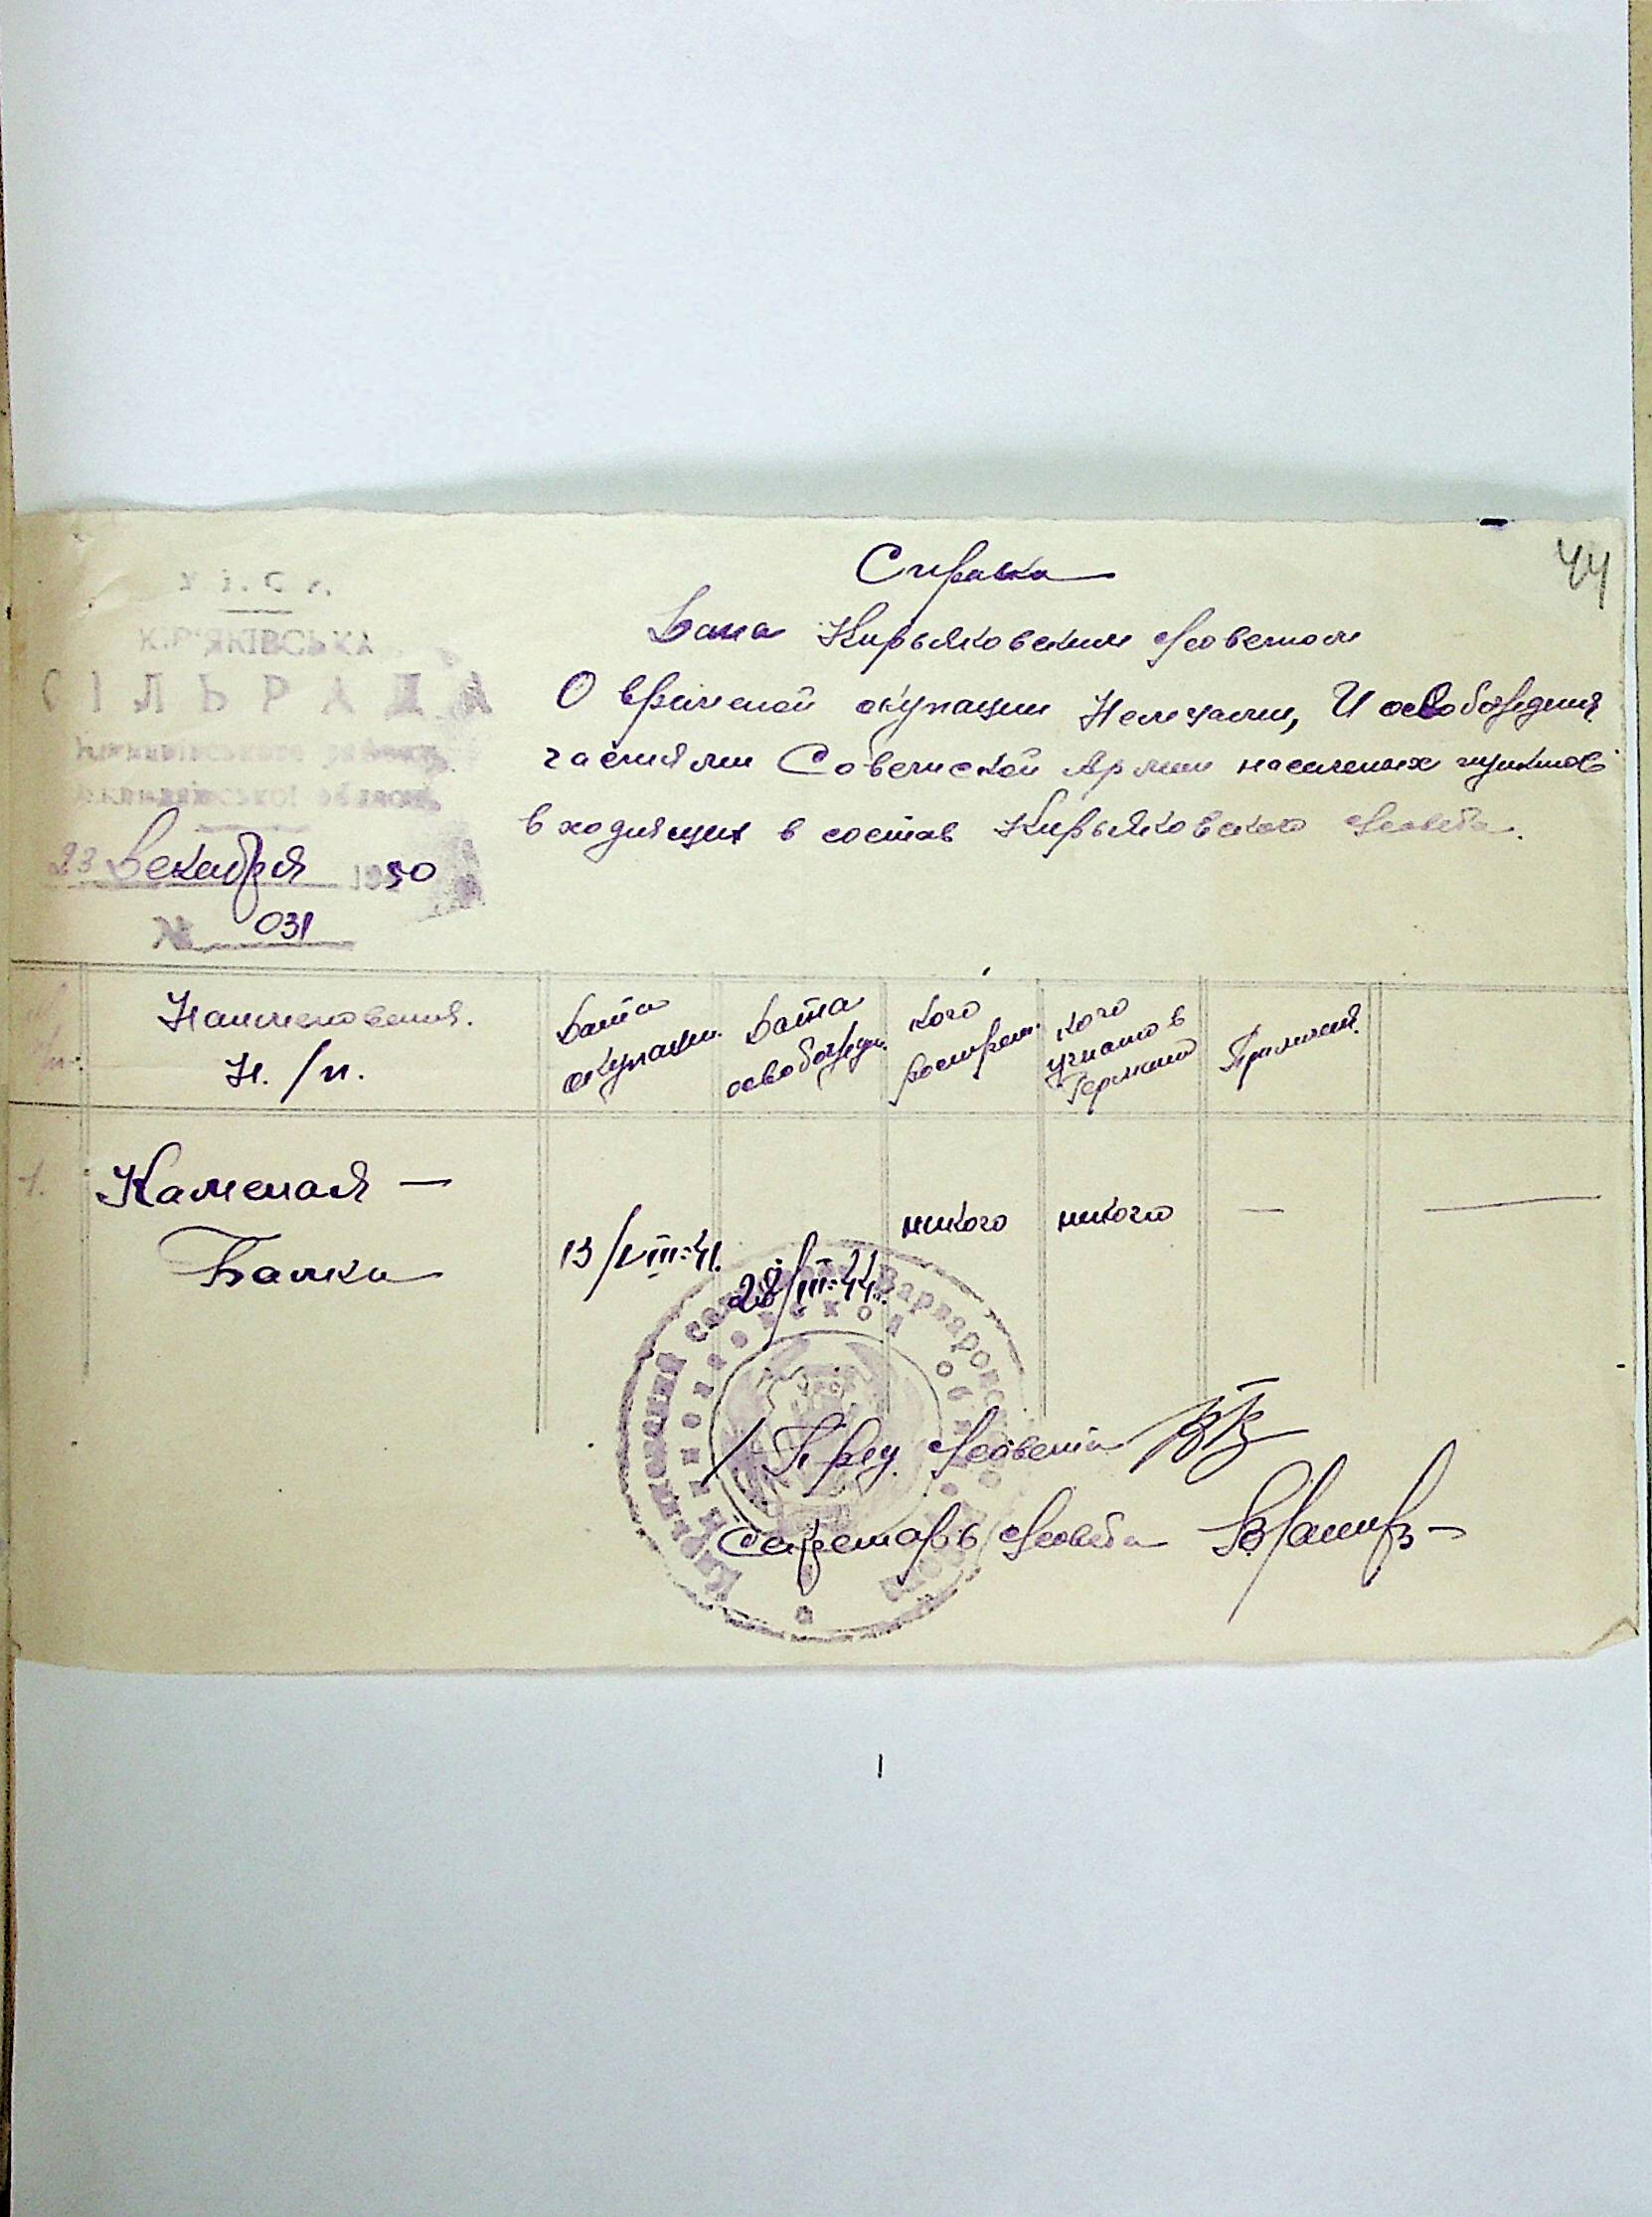 44
К.Р'ЯКІВСЬКА
СІЛЬРАДА
района
області
23 Декабря 1950
№ 031
Справка
Дана Кирьяковским с/советом
О временой окупации Немцами, И освобождения
частями Советской Армии населеных пунктов
входящих в состав Кирьяковского с/совета.
Наименования. Н./п.
Дата окупации.
Дата освобожден.
кого
кого угнато в Германию
Примечан.
1.
Каменая –
Балка
13/VIII-41.
28/III-44.
никого
никого
—
—
Пред. с/совета
Секретарь с/совета